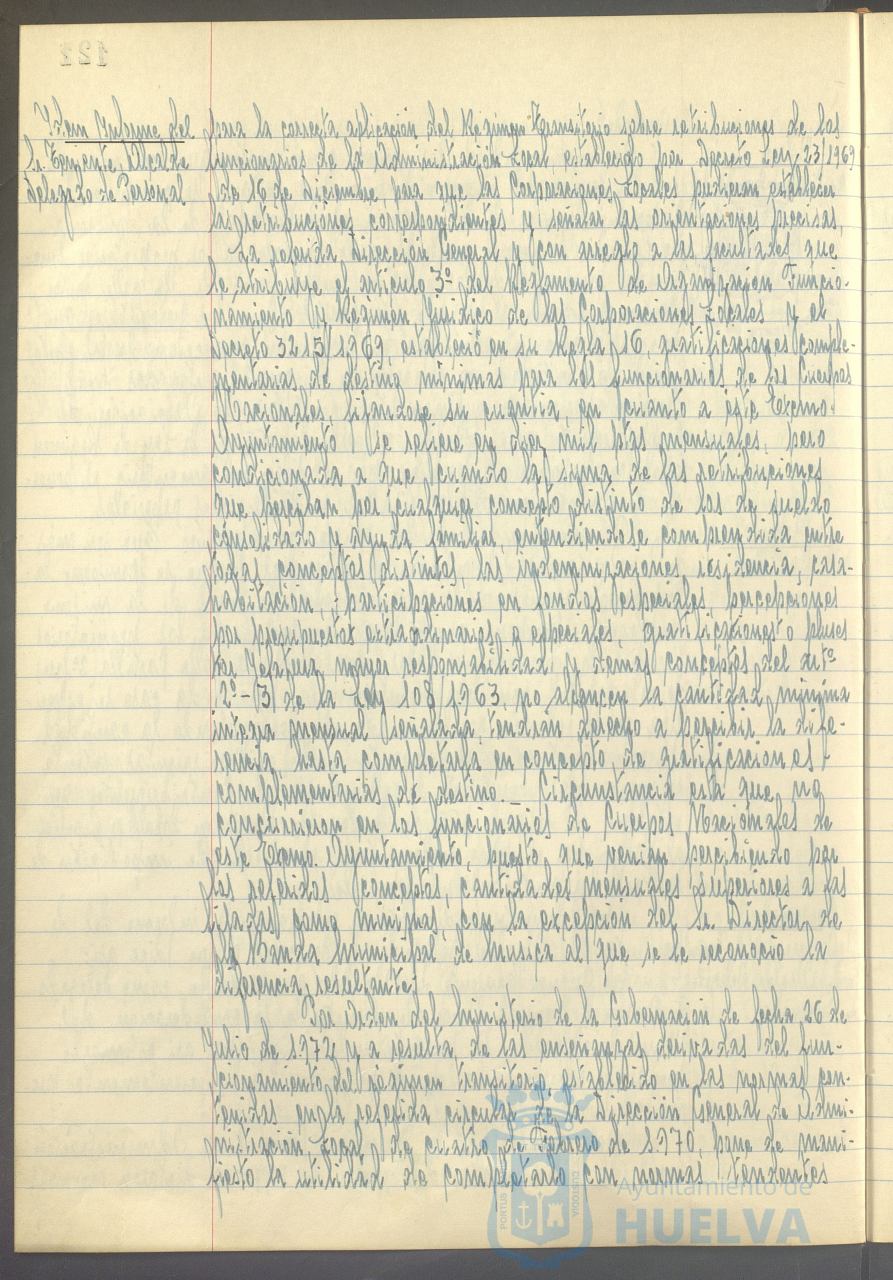 Item Informe del
Sr. Teniente Alcalde
Delegado de Personal
para la correcta aplicación del Régimen Transitorio sobre retribuciones de los
funcionarios de la Administración Local, establecido por Decreto Ley 23/1969
de 16 de Diciembre, para que las Corporaciones Locales pudieran establecer
las retribuciones correspondientes y señalar las orientaciones precisas.
La referida Dirección General y con arreglo a las facultades que
le atribuye el artículo 3º del Reglamento de Organización Funcio-
namiento y Régimen Jurídico de las Corporaciones Locales y el
Decreto 3215/1969, estableció en su Regla 16, gratificaciones comple-
mentarias de destino mínimas para los funcionarios de los Cuerpos
Nacionales, fijandose su cuantía, en cuanto a este Excmo.
Ayuntamiento se refiere en diez mil ptas mensuales, pero
condicionada a que cuando la suma de las retribuciones
que perciban por cualquier concepto distinto de los de sueldo
consolidado y ayuda familiar, entendiendose comprendida entre
todas conceptos distintos, las indemnizaciones residencia, casa-
habitación, participaciones en fondos especiales, percepciones
por presupuestos extraordinarios o especiales, gratificaciones o pluses
de Jefatura mayor responsabilidad y demas conceptos del artº
2º-3 de la Ley 108/1963, no alcancen la cantidad mínima
integra mensual señalada, tendran derecho a percibir la dife-
rencia hasta completarla en concepto de gratificaciones
complementarias de destino. - Circunstancia esta que no
concurrieron en los funcionarios de Cuerpos Nacionales de
este Excmo. Ayuntamiento, puesto que venian percibiendo por
los referidos conceptos, cantidades mensuales superiores a las
fijadas como mínimas, con la excepción del Sr. Director de
la Banda Municipal de Musica al que se le reconoció la
diferencia resultante.
Por Orden del Ministerio de la Gobernación de fecha 26 de
Julio de 1972 y a resulta de las enseñanzas derivadas del fun-
cionamiento del régimen transitorio establecido en las normas con-
tenidas en la referida circular de la Dirección General de Admi-
nistración Local de cuatro de Febrero de 1970, pone de mani-
fiesto la utilidad de completarlo con normas tendentes
Ayuntamiento de
HUELVA